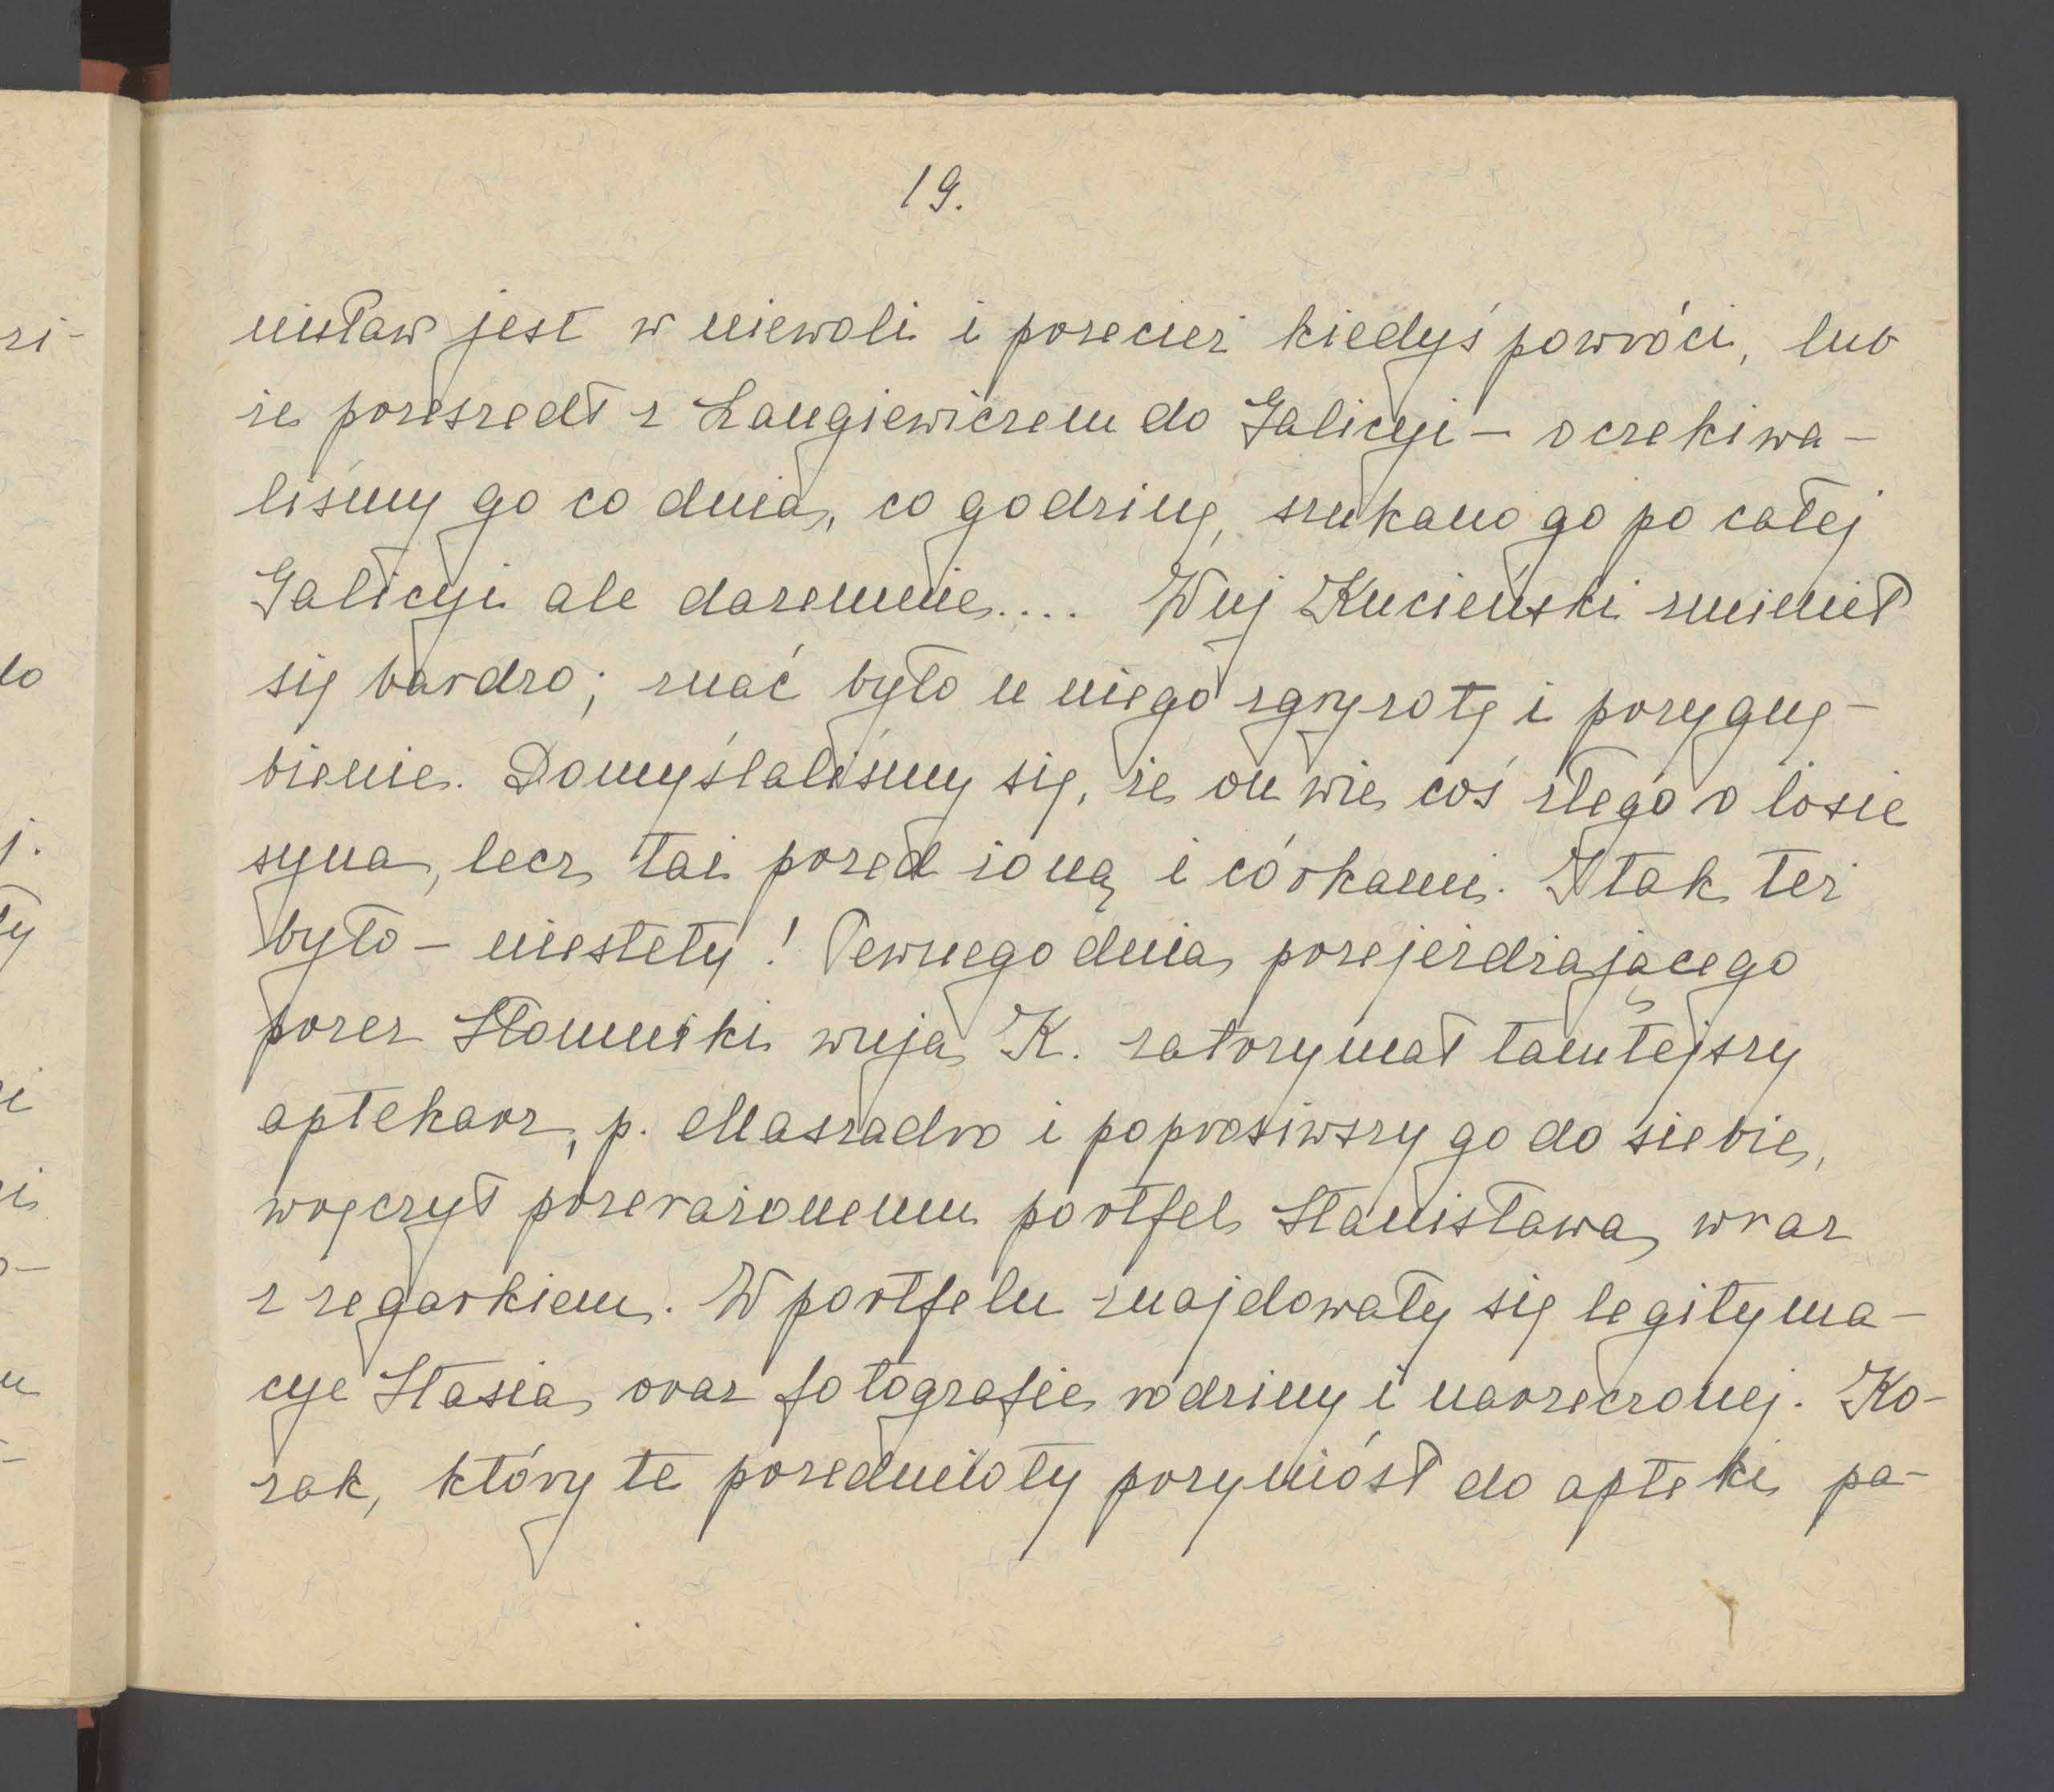 19.
nisław jest w niewoli i przecież kiedyś powróci, lub
że przeszedł z Langiewiczem do Galicyi – oczekiwa-
liśmy go co dnia, co godzinę, szukano go po całej
Galicyi ale daremnie.... Wuj Kucieński zmienił
się bardzo; znać było u niego zgryzotę i przygnę-
bienie. Domyślaliśmy się, że on wie coś złego o losie
syna, lecz tai przed żoną i córkami. I tak też
było – niestety! Pewnego dnia przejeżdżającego
przez Słomniki wuja K. zatrzymał tamtejszy
aptekarz, p. Maszadro i poprosiwszy go do siebie,
wręczył przerażonemu portfel Stanisława wraz
z zegarkiem. W portfelu znajdowały się legityma-
cye Stasia oraz fotografie rodziny i narzeczonej. Ko-
zak, który te przedmioty przyniósł do apteki pa-